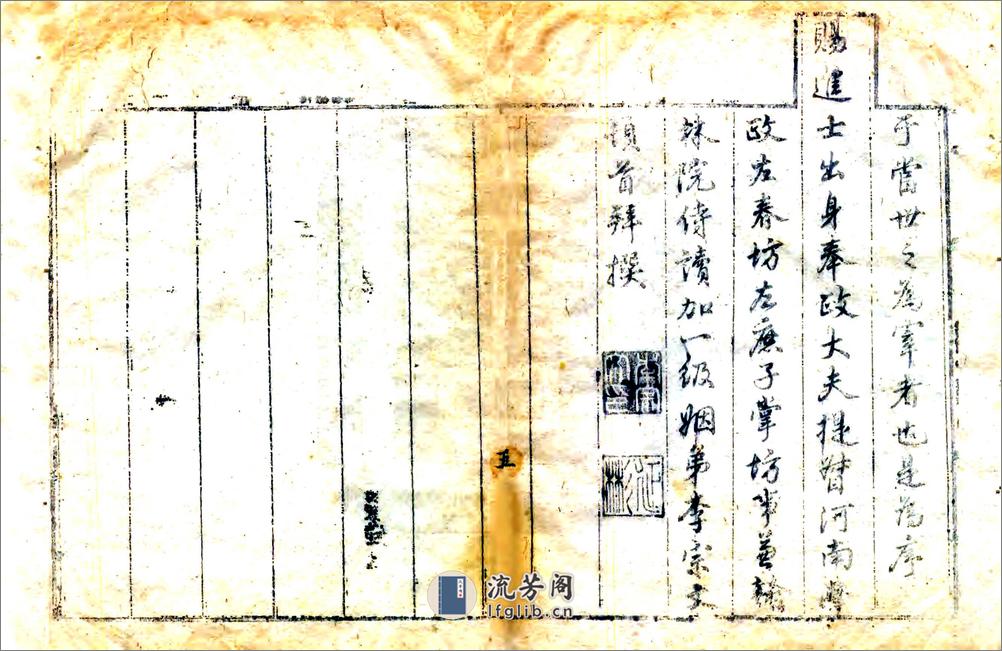 于當世之為宰者也是為序
賜進士出身奉政大夫提督河南學
政左春坊左庶子掌坊事兼翰
林院侍讀加一級姻弟李宗文
頓首拜撰
五
流芳阁
lfglib.cn